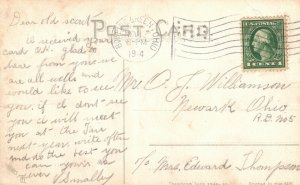 Dear old scout
I received your
card OK. glad to
hear from you. we
are all well and
would like to see
you. if I dont see
you I will meet
you at the Fair
next year. write often
and do the best you
can yours as
ever
Smalley
POST CARD
BOWLING GREEN OHIO
6-PM
1914
U.S. POSTAGE
1 CENT 1
Mr. O. J. Williamson
Newark Ohio
R.D. No 5
c/o Mrs. Edward Thompson